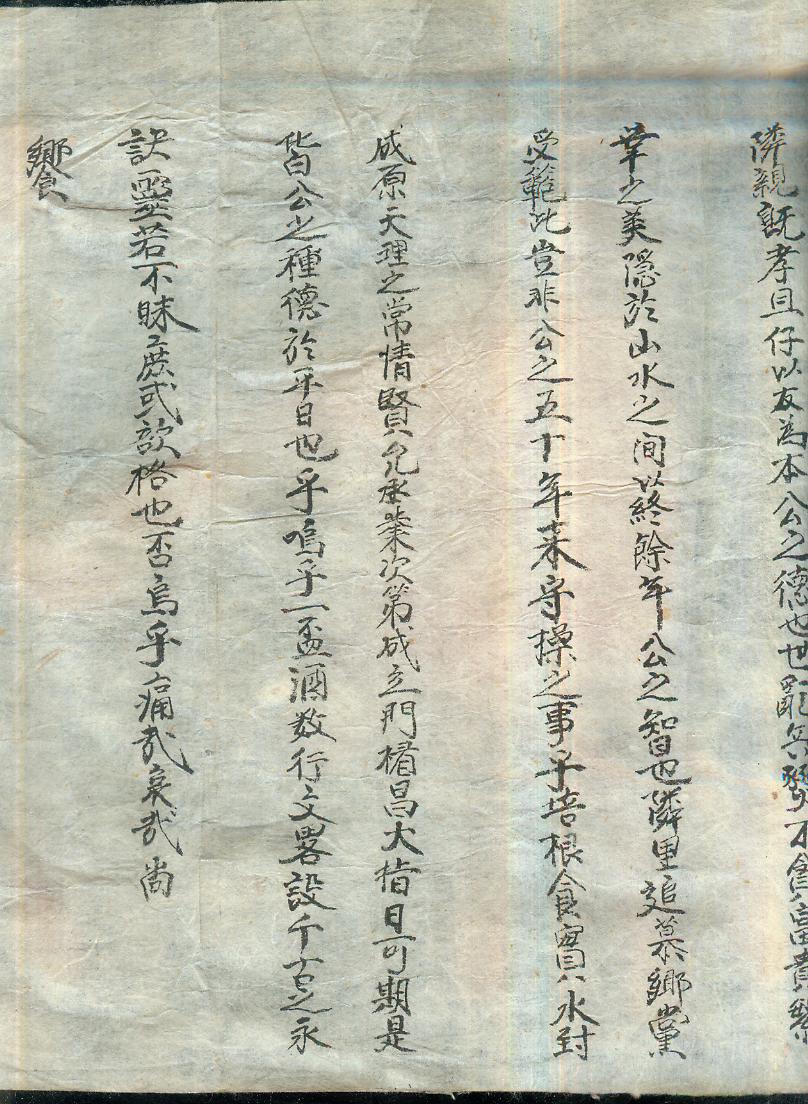 隣親既孝且仔以友為本公之德也世亂兵
不貪富貴繁
華之美隱於山水之间以終餘年公之智也隣里追慕鄉黨
受範此豈非公之五十年来守操之事乎培根食實水到
成原天理之常情賢允承業次第成立門楣昌大指日可期是
皆公之種德於平日也乎嗚乎一盃酒数行文畧設千古之永
訣靈若不昧庶或歆格也否烏乎痛哉哀哉尚
饗